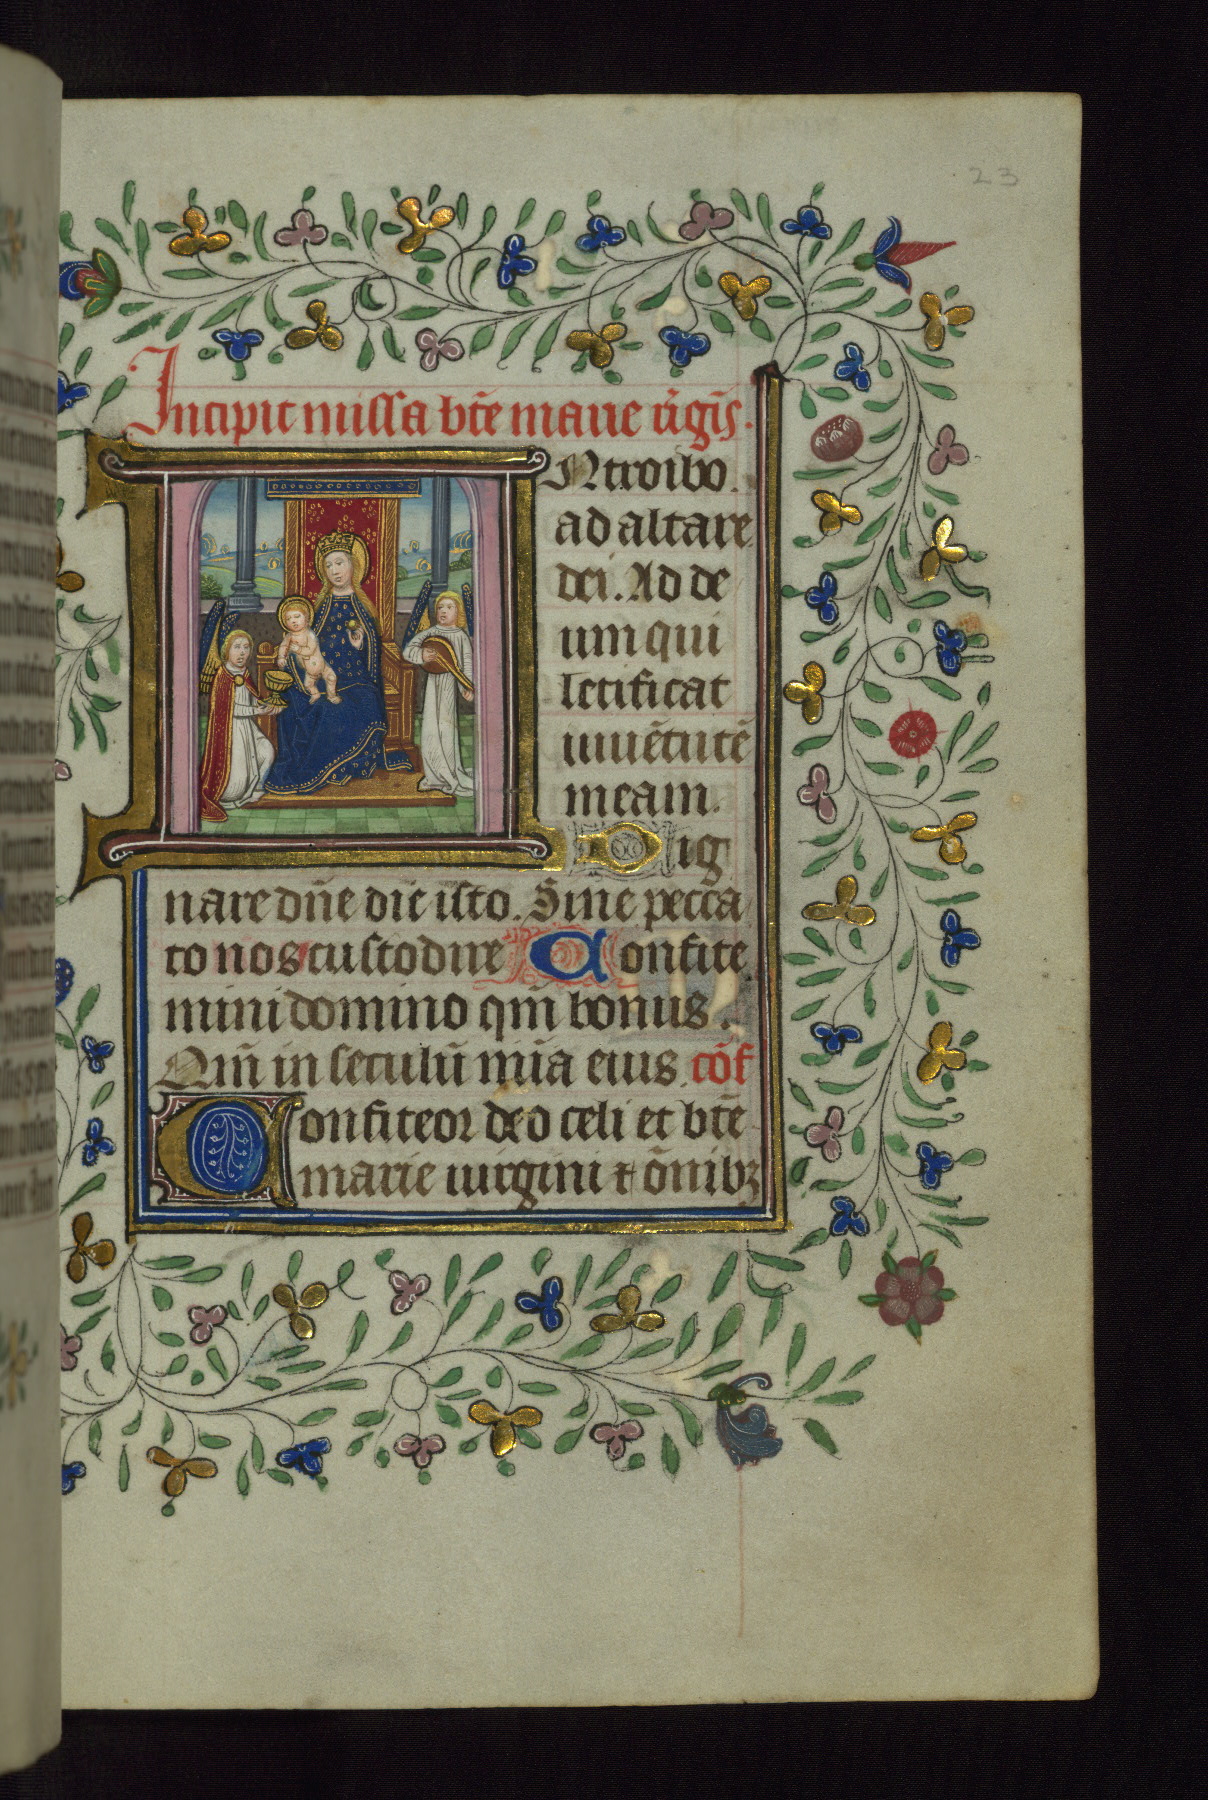 23
Incipit missa bt̄e marie v̄gīs.
INtroibo
ad altare
dei. Ad de
um qui
letificat
iuuētutē
meam.
Dig
nare dn̄e die isto. Sine pecca
to nos custodire Confite
mini domino qm̄ bonus.
Qm̄ in seculū mīa eius. cōf
Confiteor deo celi et bt̄e
marie uirgini ⁊ ōnibꝫ